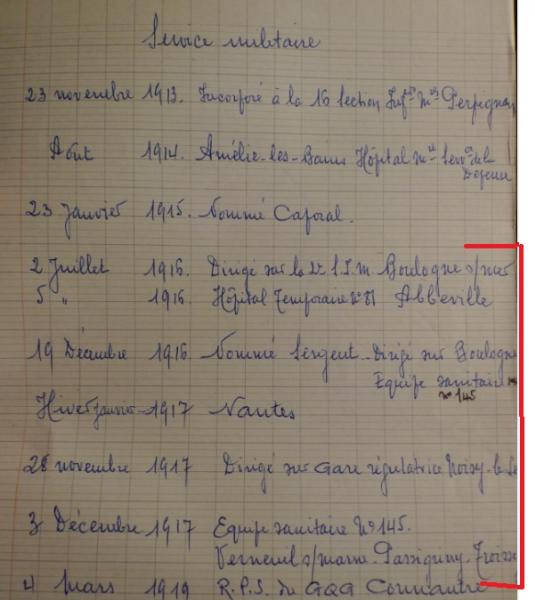 Service militaire
23 novembre 1913. Incorporé à la 16 Section Inf^{ers} M^{res} Perpignan
Août 1914. Amélie-les-Bains Hôpital M^{re}
23 Janvier 1915. Nommé Caporal.
2 Juillet 1916. Dirigé sur la 2^e S.I.M. Boulogne s/mer
5 " 1916 Hôpital Temporaire N° 81 Abbeville
19 Décembre 1916 Nommé Sergent. Dirigé sur Boulogne
Equipe sanitaire
n° 145
Hiver janvier 1917 Nantes
28 novembre 1917 Dirigé sur Gare régulatrice Noisy-le-Se
3 Décembre 1917 Equipe sanitaire N° 145.
Verneuil s/marne. Passigny. Froiss
4 Mars 1919 R.P.S. du GQG Connantre